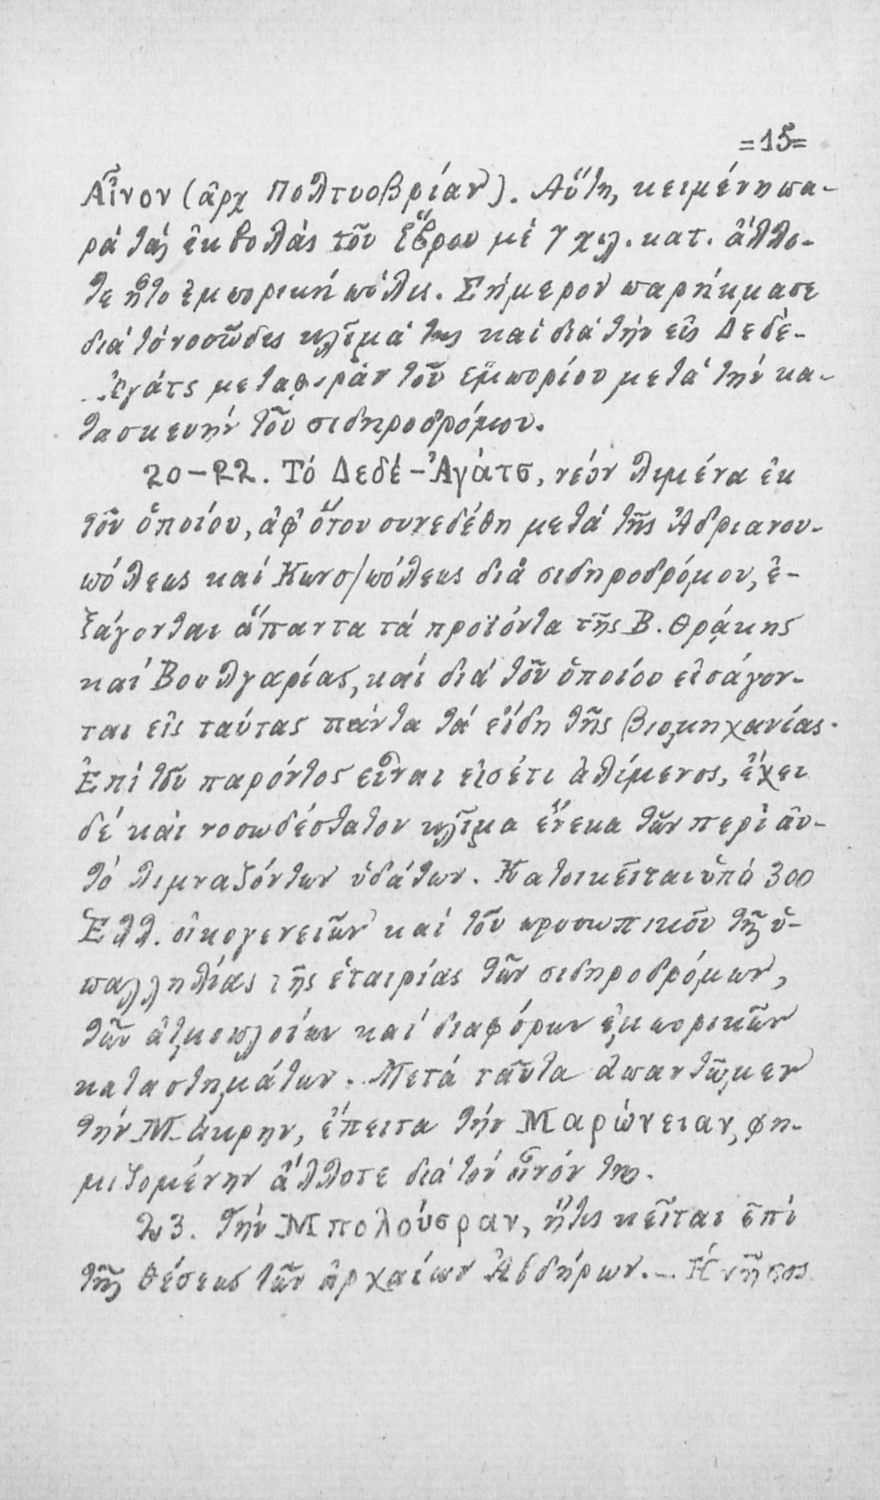 =15=
Αἶνον (ἀρχ Πολτυοβρίαν). Αὕτη, κειμένη πα-
ρά τάς ἐκβολάς τοῦ Ἕβρου μέ 7 χιλ. κατ. ἄλλο-
τε ἦτο ἐμπορική πόλις. Σήμερον παρήκμασε
διά τό νοσῶδες κλῖμά της καί διά τήν εἰς Δεδέ-
Ἀγάτς μεταφοράν τοῦ ἐμπορίου μετά τήν κα-
τασκευήν τοῦ σιδηροδρόμου.
20-22. Τό Δεδέ-Ἀγάτσ, νέον λιμένα ἐκ
τοῦ ὁποίου, ἀφ' ὅτου συνεδέθη μετά τῆς Ἀδριανου-
πόλεως καί Κωνσ/πόλεως διά σιδηροδρόμου, ἐ-
ξάγονται ἅπαντα τά προϊόντα τῆς Β. Θράκης
καί Βουλγαρίας, καί διά τοῦ ὁποίου εἰσάγον-
ται εἰς ταύτας πάντα τά εἴδη τῆς βιομηχανίας.
Ἐπί τοῦ παρόντος εἶναι εἰσέτι ἀλίμενος, ἔχει
δέ καί νοσωδέστατον κλῖμα ἕνεκα τῶν περί αὐ-
τό λιμναζόντων ὑδάτων. Κατοικεῖται ὑπό 300
Ἑλλ. οἰκογενειῶν καί τοῦ προσωπικοῦ τῆς ὑ-
παλληλίας τῆς ἑταιρίας τῶν σιδηροδρόμων,
τῶν ἀτμοπλοίων καί διαφόρων ἐμπορικῶν
καταστημάτων. Μετά ταῦτα ἀπαντῶμεν
τήν Μάκρην, ἔπειτα τήν Μαρώνειαν, φη-
μιζομένην ἄλλοτε διά τόν οἶνόν της.
23. Τήν Μπολούσραν, ἥτις κεῖται ἐπί
τῆς θέσεως τῶν ἀρχαίων Ἀβδήρων.— Ἡ νῆσος